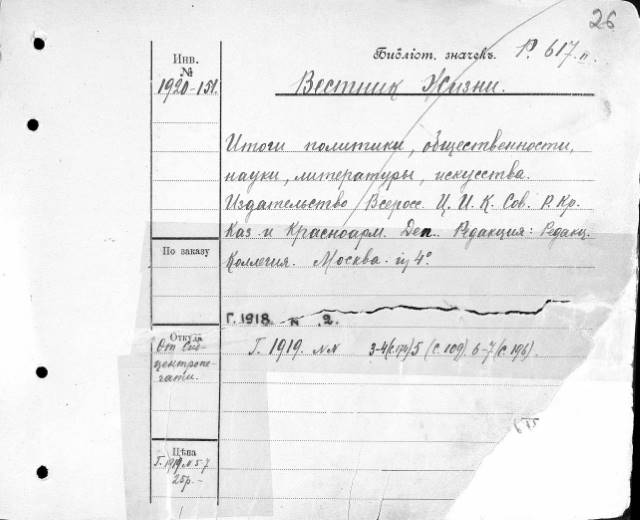 26
Инв. №
1920-151.
Библіот. значекъ. Р. 617 п.
Вестник Жизни.
Итоги политики, общественности,
науки, литературы, искусства.
Издательство Всеросс. Ц. И. К. Сов. Р. Кр.
Каз и Красноарм. Деп. Редакция: Редакц.
Коллегия. Москва. in 4°.
По заказу
Г. 1918. N 2.
Откуда
От Сиб-
центропе-
чати.
Г. 1919. NN 3-4 (с. 174) 5 (с. 109). 6-7 (с. 196).
Цѣна
Г. 1919 N 5-7
25р. -